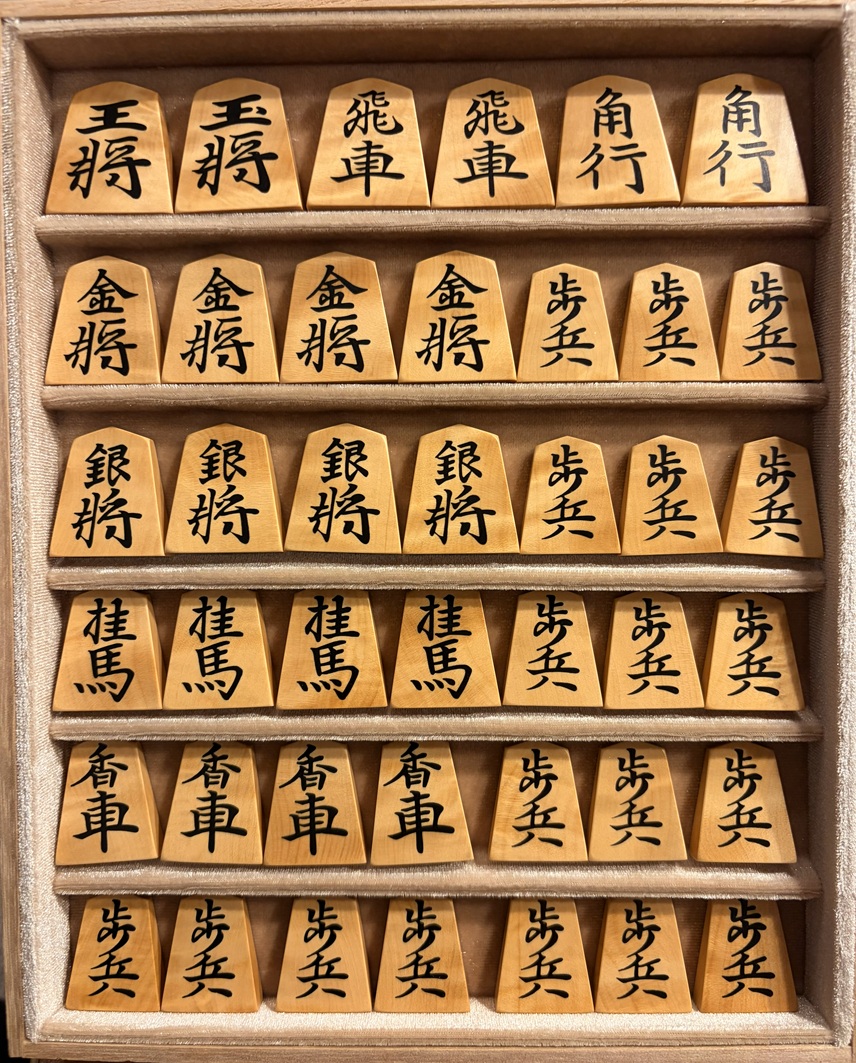 王将 玉将 飛車 飛車 角行 角行
金将 金将 金将 金将 歩兵 歩兵 歩兵
銀将 銀将 銀将 銀将 歩兵 歩兵 歩兵
桂馬 桂馬 桂馬 桂馬 歩兵 歩兵 歩兵
香車 香車 香車 香車 歩兵 歩兵 歩兵
歩兵 歩兵 歩兵 歩兵 歩兵 歩兵 歩兵